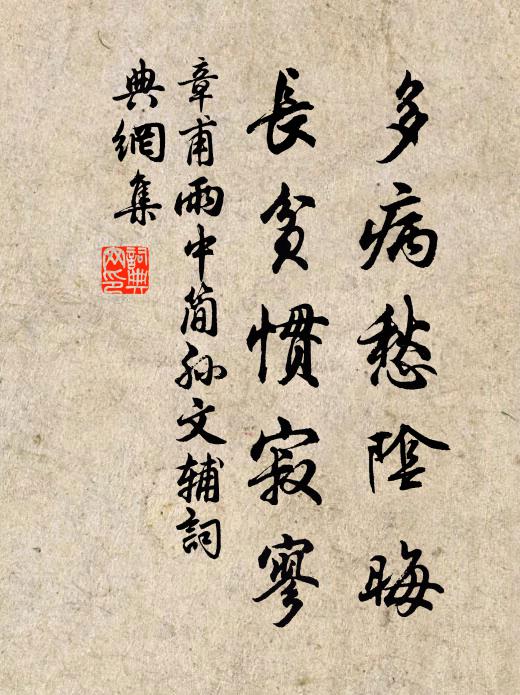 多病愁陰晦
長貧慣寂寥
章甫雨中简孙文辅詞
典網集
詞典
网印